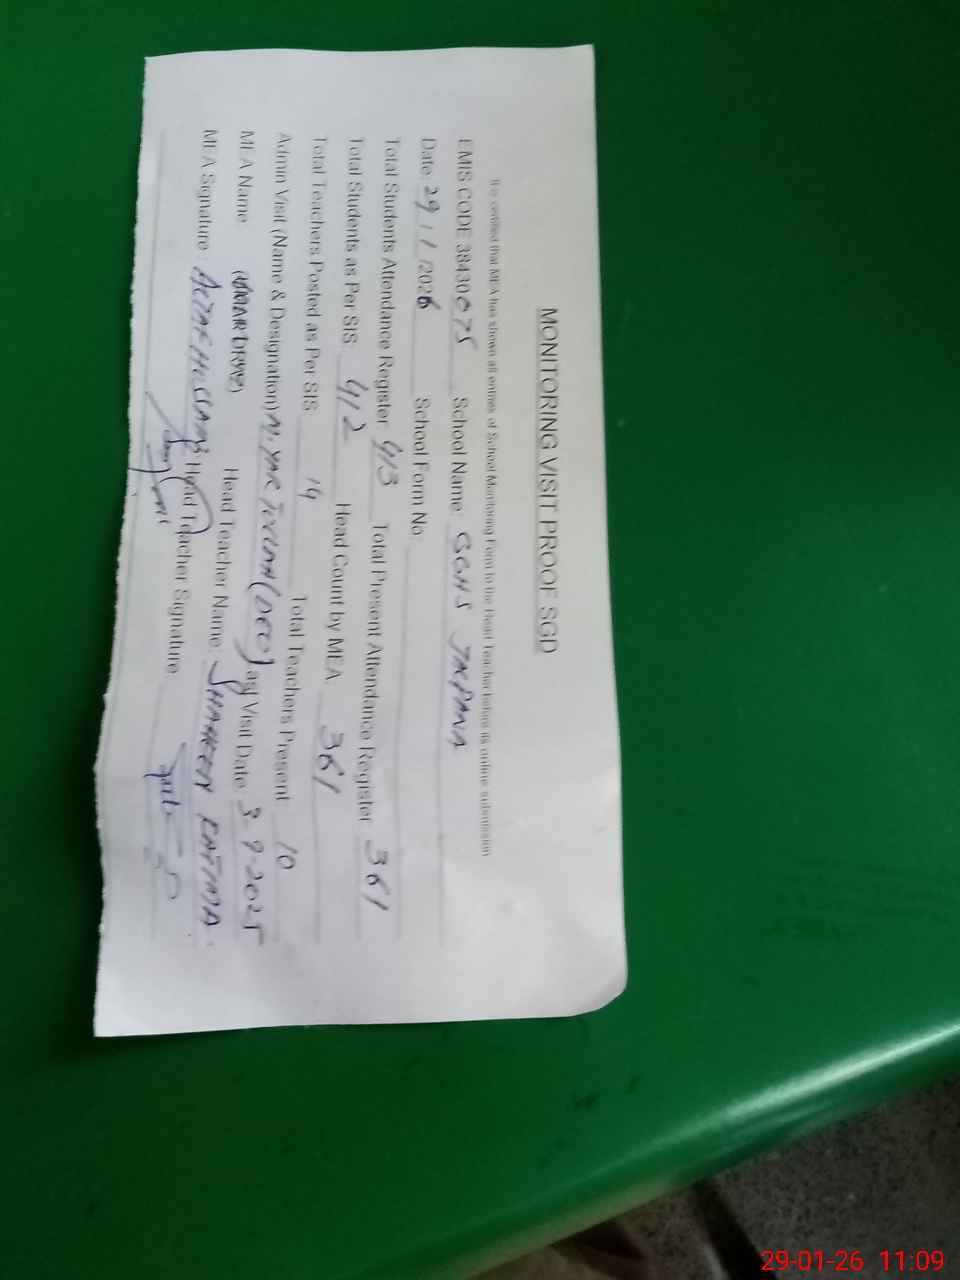 MONITORING VISIT PROOF SGD
It is certified that MEA has shown all entries of School Monitoring Form to the Head Teacher before its online submission
EMIS CODE 38430075 School Name: GGHS JKPANA
Date: 29/1/2026 School Form No:
Total Students Attendance Register 413 Total Present Attendance Register 361
Total Students as Per SIS: 412 Head Count by MEA 361
Total Teachers Posted as Per SIS 14 Total Teachers Present 10
Admin Visit (Name & Designation) (DEO) Last Visit Date 3-9-2025
MEA Name Head Teacher Name: SHAHEEN FATIMA
MEA Signature: ALTAF HUSSAIN Head Teacher Signature
29-01-26 11:09